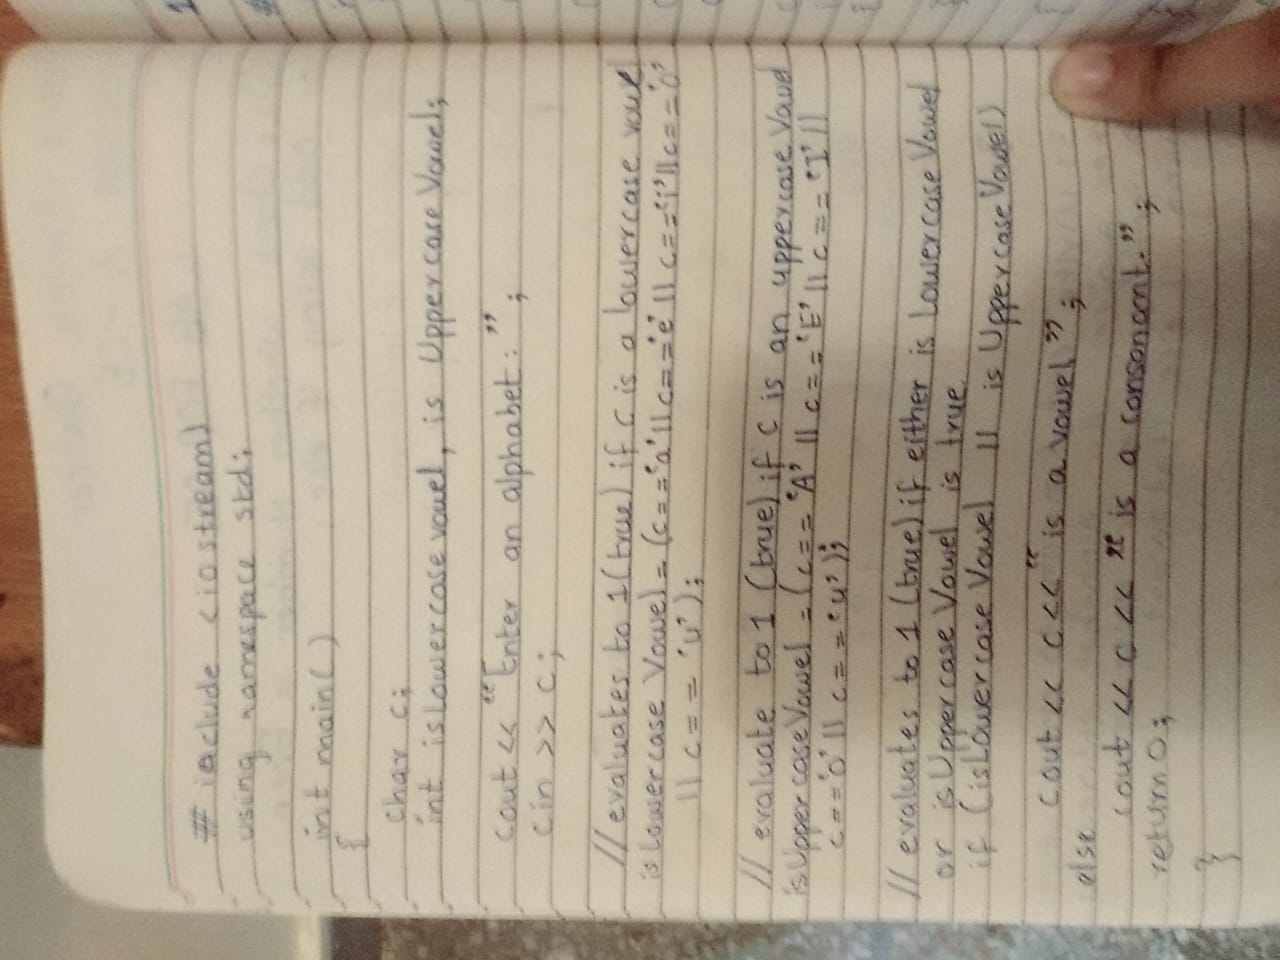 # include <iostream>
using namespace std;
int main( )
{
char c;
int islowercase vowel, is Uppercase Vowel;
cout << "Enter an alphabet: ";
cin >> c;
// evaluates to 1 (true) if c is a lowercase vowel
is Lowercase Vowel = (c == 'a' || c == 'e' || c == 'i' || c == 'o'
|| c == 'u');
// evaluate to 1 (true) if c is an uppercase Vowel
isUppercaseVowel = (c == 'A' || c == 'E' || c == 'I' ||
c == 'o' || c == 'u');
// evaluates to 1 (true) if either is lowercase Vowel
or is Uppercase Vowel is true.
if (isLowercase Vowel || is Uppercase Vowel)
cout << c << " is a vowel";
else
cout << c << " is a consonant.";
return 0;
}